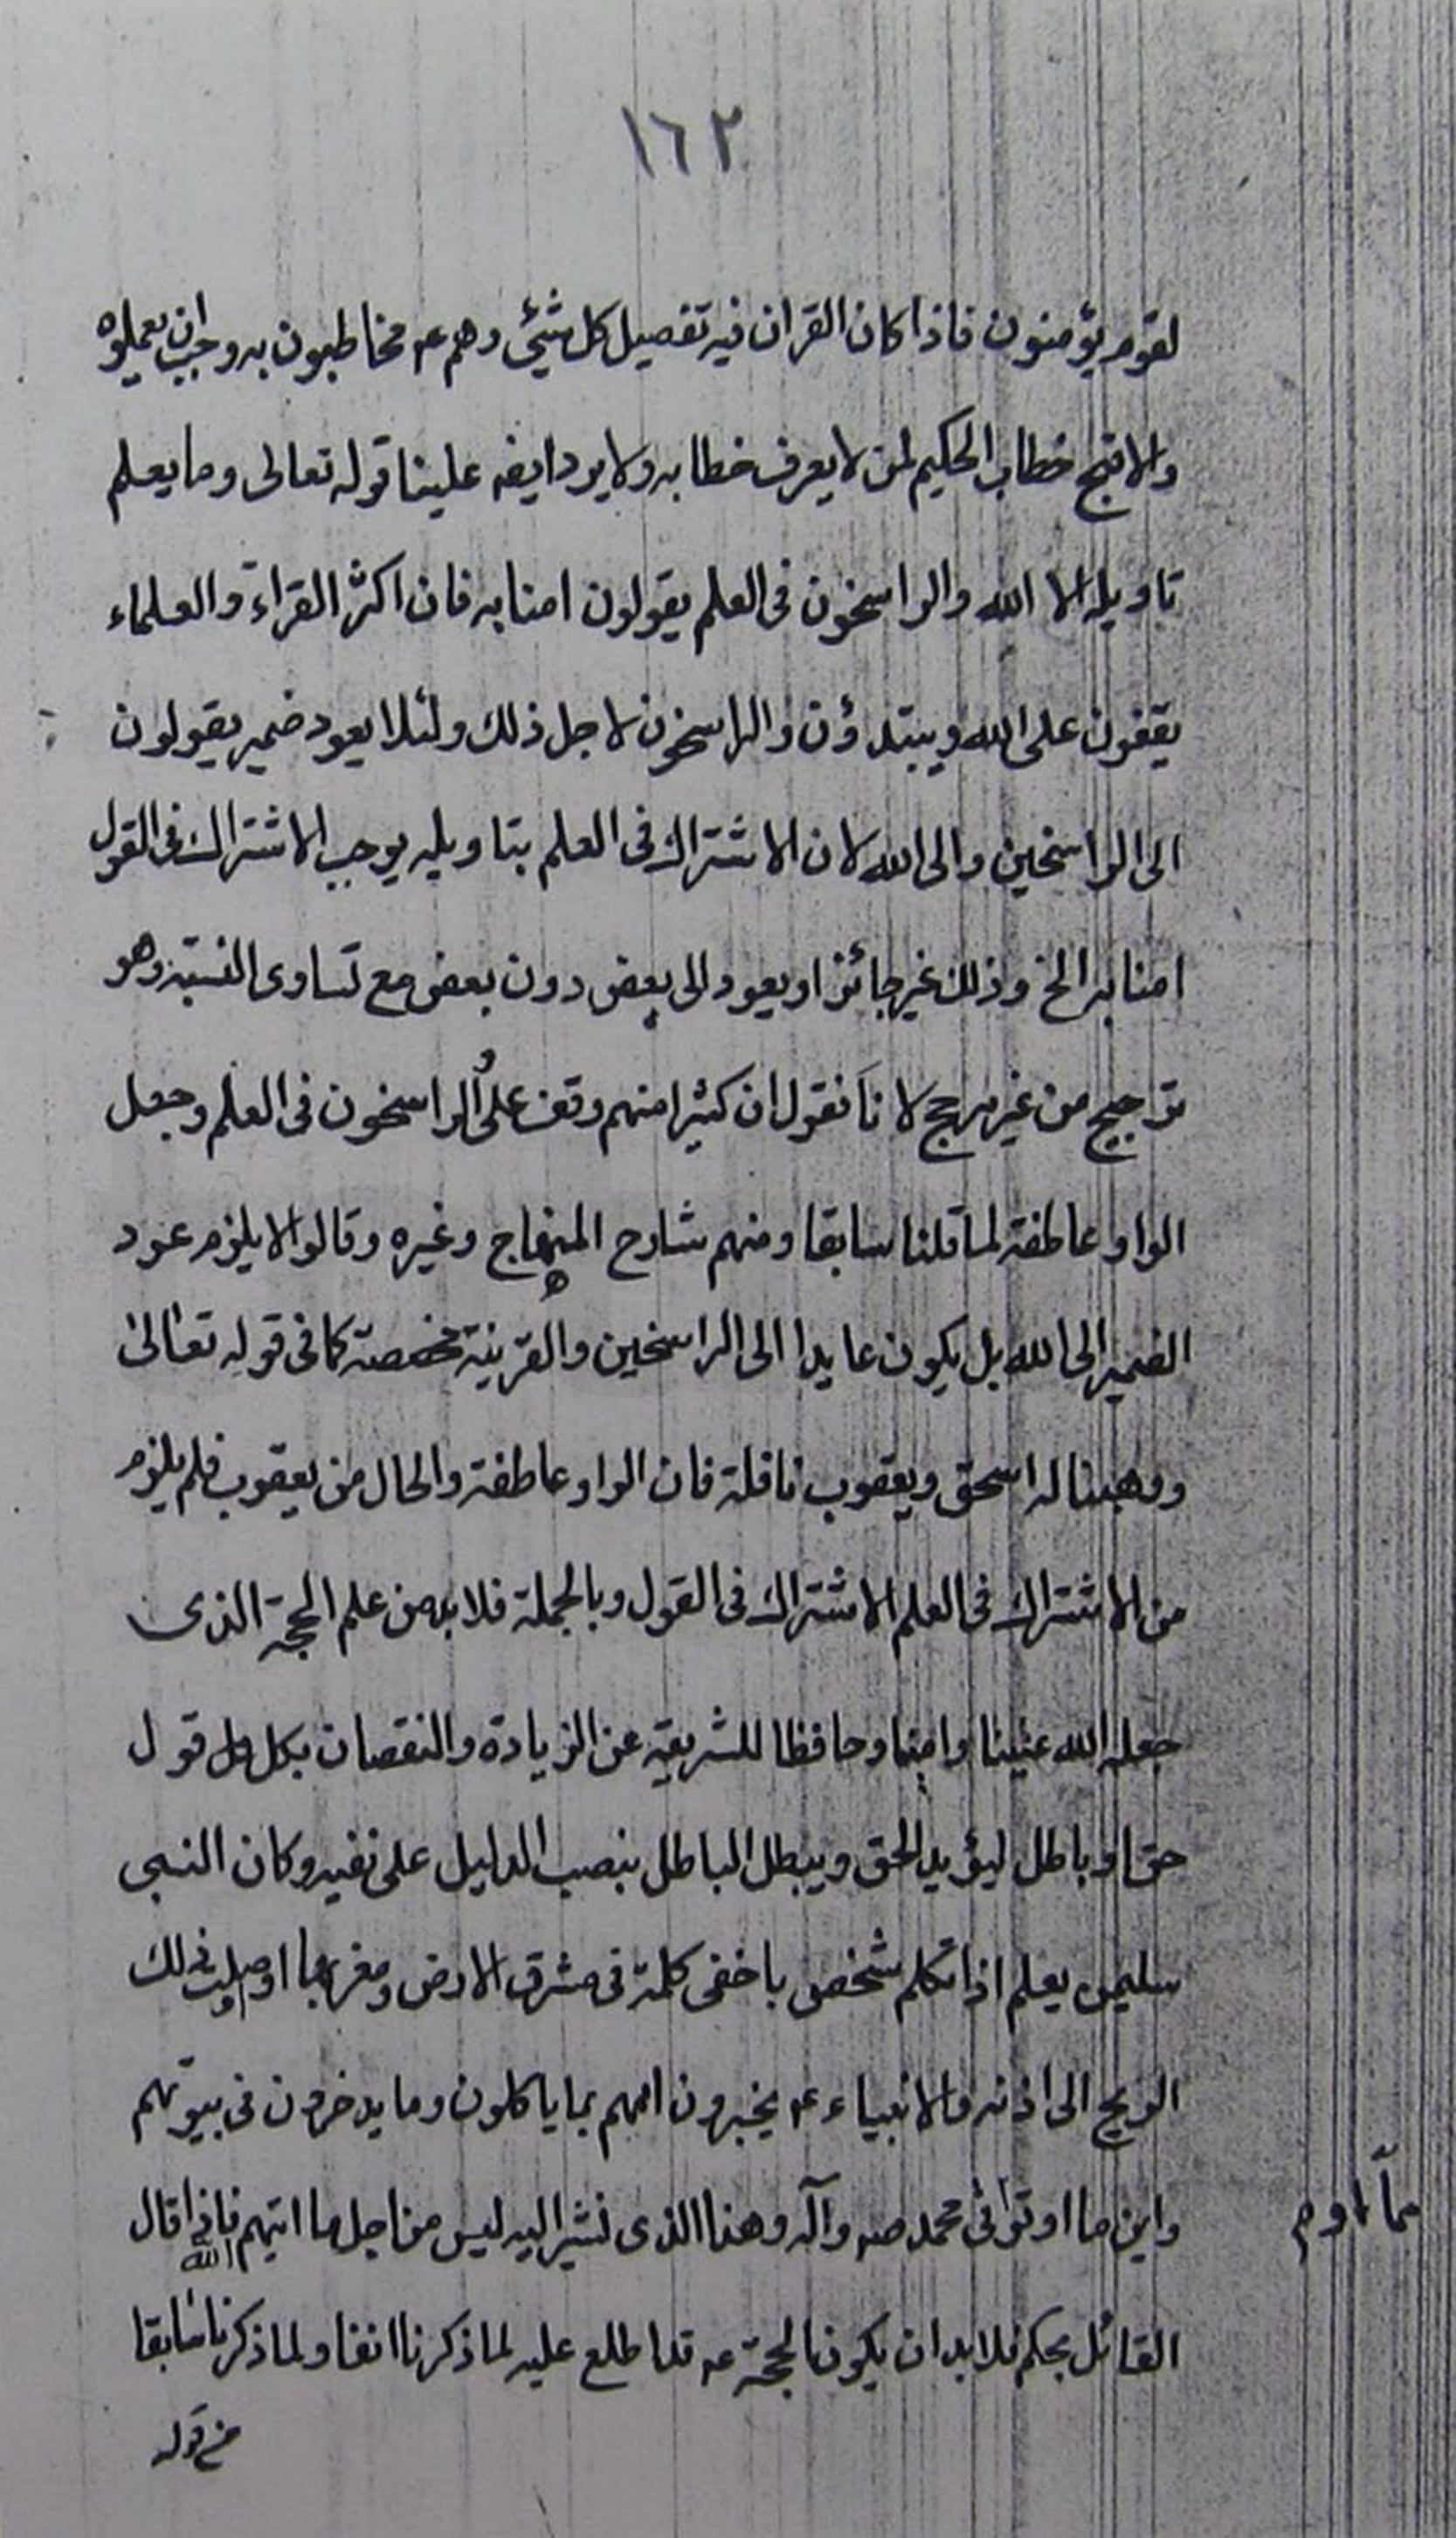 ١٦٢
لقوم يؤمنون فاذا كان القران فيه تفصيل كل شئ وهم ع مخاطبون به وجب ان يعملوه
والا قبح خطاب الحكيم لمن لا يعرف خطابه ولا يرد ايضه علينا قوله تعالى وما يعلم
تاويله الا الله والراسخون فى العلم يقولون امنا به فان اكثر القراء والعلماء
يقفون على الله ويبتدؤن والراسخون لاجل ذلك ولئلا يعود ضمير يقولون
الى الراسخين والى الله لان الاشتراك فى العلم بتاويله يوجب الاشتراك فى القول
امنا به الخ وذلك غير جائز او يعود الى بعض دون بعض مع تساوى النسبة وهو
ترجيح من غير مرجح لانا نقول ان كثيرا منهم وقف على والراسخون فى العلم وجعل
الواو عاطفة لما قلنا سابقا ومنهم شارح المنهاج وغيره وقالوا لا يلزم عود
الضمير الى الله بل يكون عايدا الى الراسخين والقرينة مخصصة كما فى قوله تعالى
ووهبنا له اسحق ويعقوب نافلة فان الواو عاطفة والحال من يعقوب فلم يلزم
من الاشتراك فى العلم الاشتراك فى القول وبالجملة فلا بد من علم الحجة الذى
جعله الله عينا وامينا وحافظا للشريعة عن الزيادة والنقصان بكل قول
حق او باطل ليؤيد الحق ويبطل الباطل بنصب الدليل على نفيه وكان النبى
سليمن يعلم اذا تكلم شخص باخفى كلمة فى مشرق الارض ومغربها اوصلت ذلك
الريح الى اذنه والانبياء ع يخبرون اممهم بما ياكلون وما يدخرون فى بيوتهم
واين ما اوتوا فى محمد صه وآله وهذا الذى نشير اليه ليس من اجل ما اتيهم الله فاذا قال
مما اوتى
القائل بحكم فلا بد ان يكون الحجة ع قد اطلع عليه لما ذكرنا انفا ولما ذكرنا سابقا
من قوله